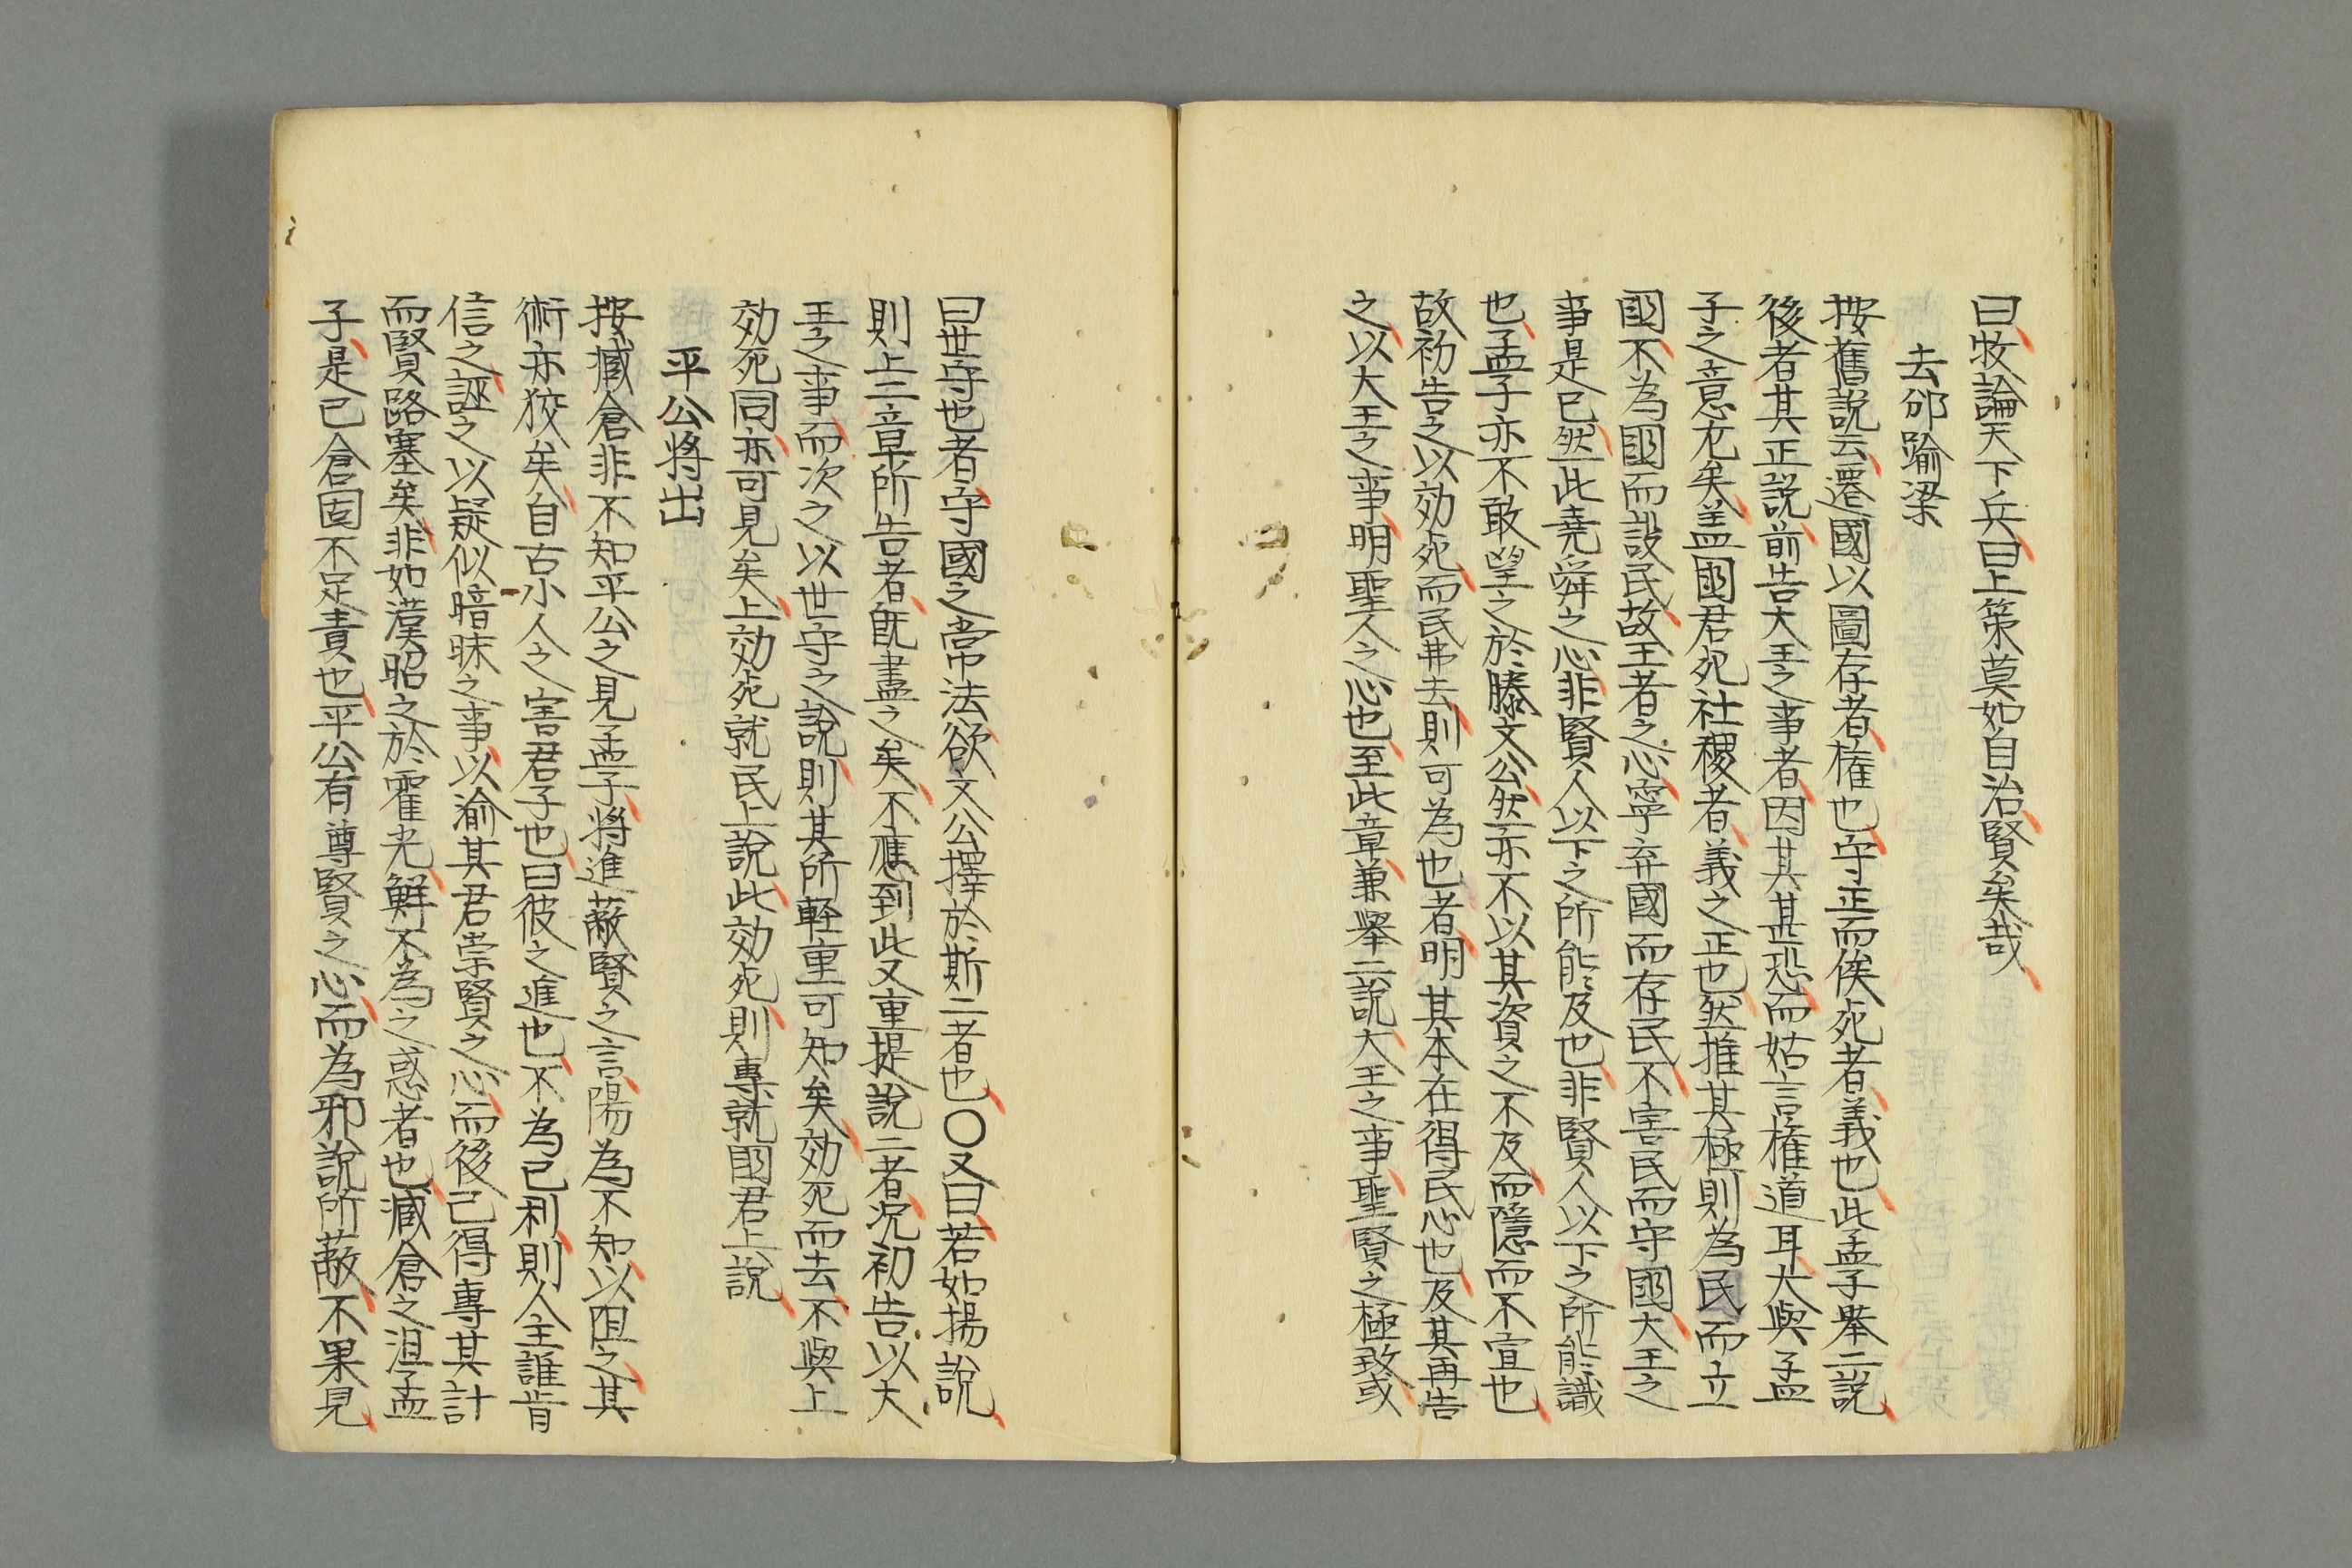 曰牧論天下兵曰上策莫如自治賢矣哉
去邠踰梁
按舊説云遷國以圖存者權也守正而俟死者義也此孟子舉二説
後者其正説前告大王之事者因其甚恐而姑言權道耳大與孟
子之意尤矣盖國君死社稷者義之正也然推其極則為民而立
國不為國而設民故王者之心寧弃國而存民不害民而守國大王之
事是已然此堯舜之心非賢人以下之所能及也非賢人以下之所能識
也孟子亦不敢望之於滕文公然亦不以其資之不及而隱而不宣也
故初告之以効死而民弗去則可為也者明其本在得民心也及其再告
之以大王之事明聖人之心也至此章兼舉二説大王之事聖賢之極致或
曰世守也者守國之常法欲文公擇於斯二者也〇又曰若如揚説
則上二章所告者既盡之矣不應到此又重提説二者况初告以大
王之事而次之以世守之説則其所輕重可知矣効死而去不與上
効死同亦可見矣上効死就民上説此効死則專就國君上説
平公將出
按臧倉非不知平公之見孟子將進蔽賢之言陽為不知以阻之其
術亦狡矣自古小人之害君子也曰彼之進也不為己利則人主誰肯
信之誣之以疑似暗昧之事以渝其君崇賢之心而後己得專其計
而賢路塞矣非如漢昭之於霍光鮮不為之惑者也臧倉之沮孟
子是已倉固不足責也平公有尊賢之心而為邪説所蔽不果見